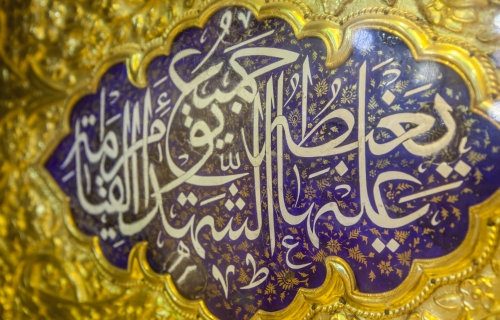 يغبطه عليها جميع الشهداء يوم القيامة